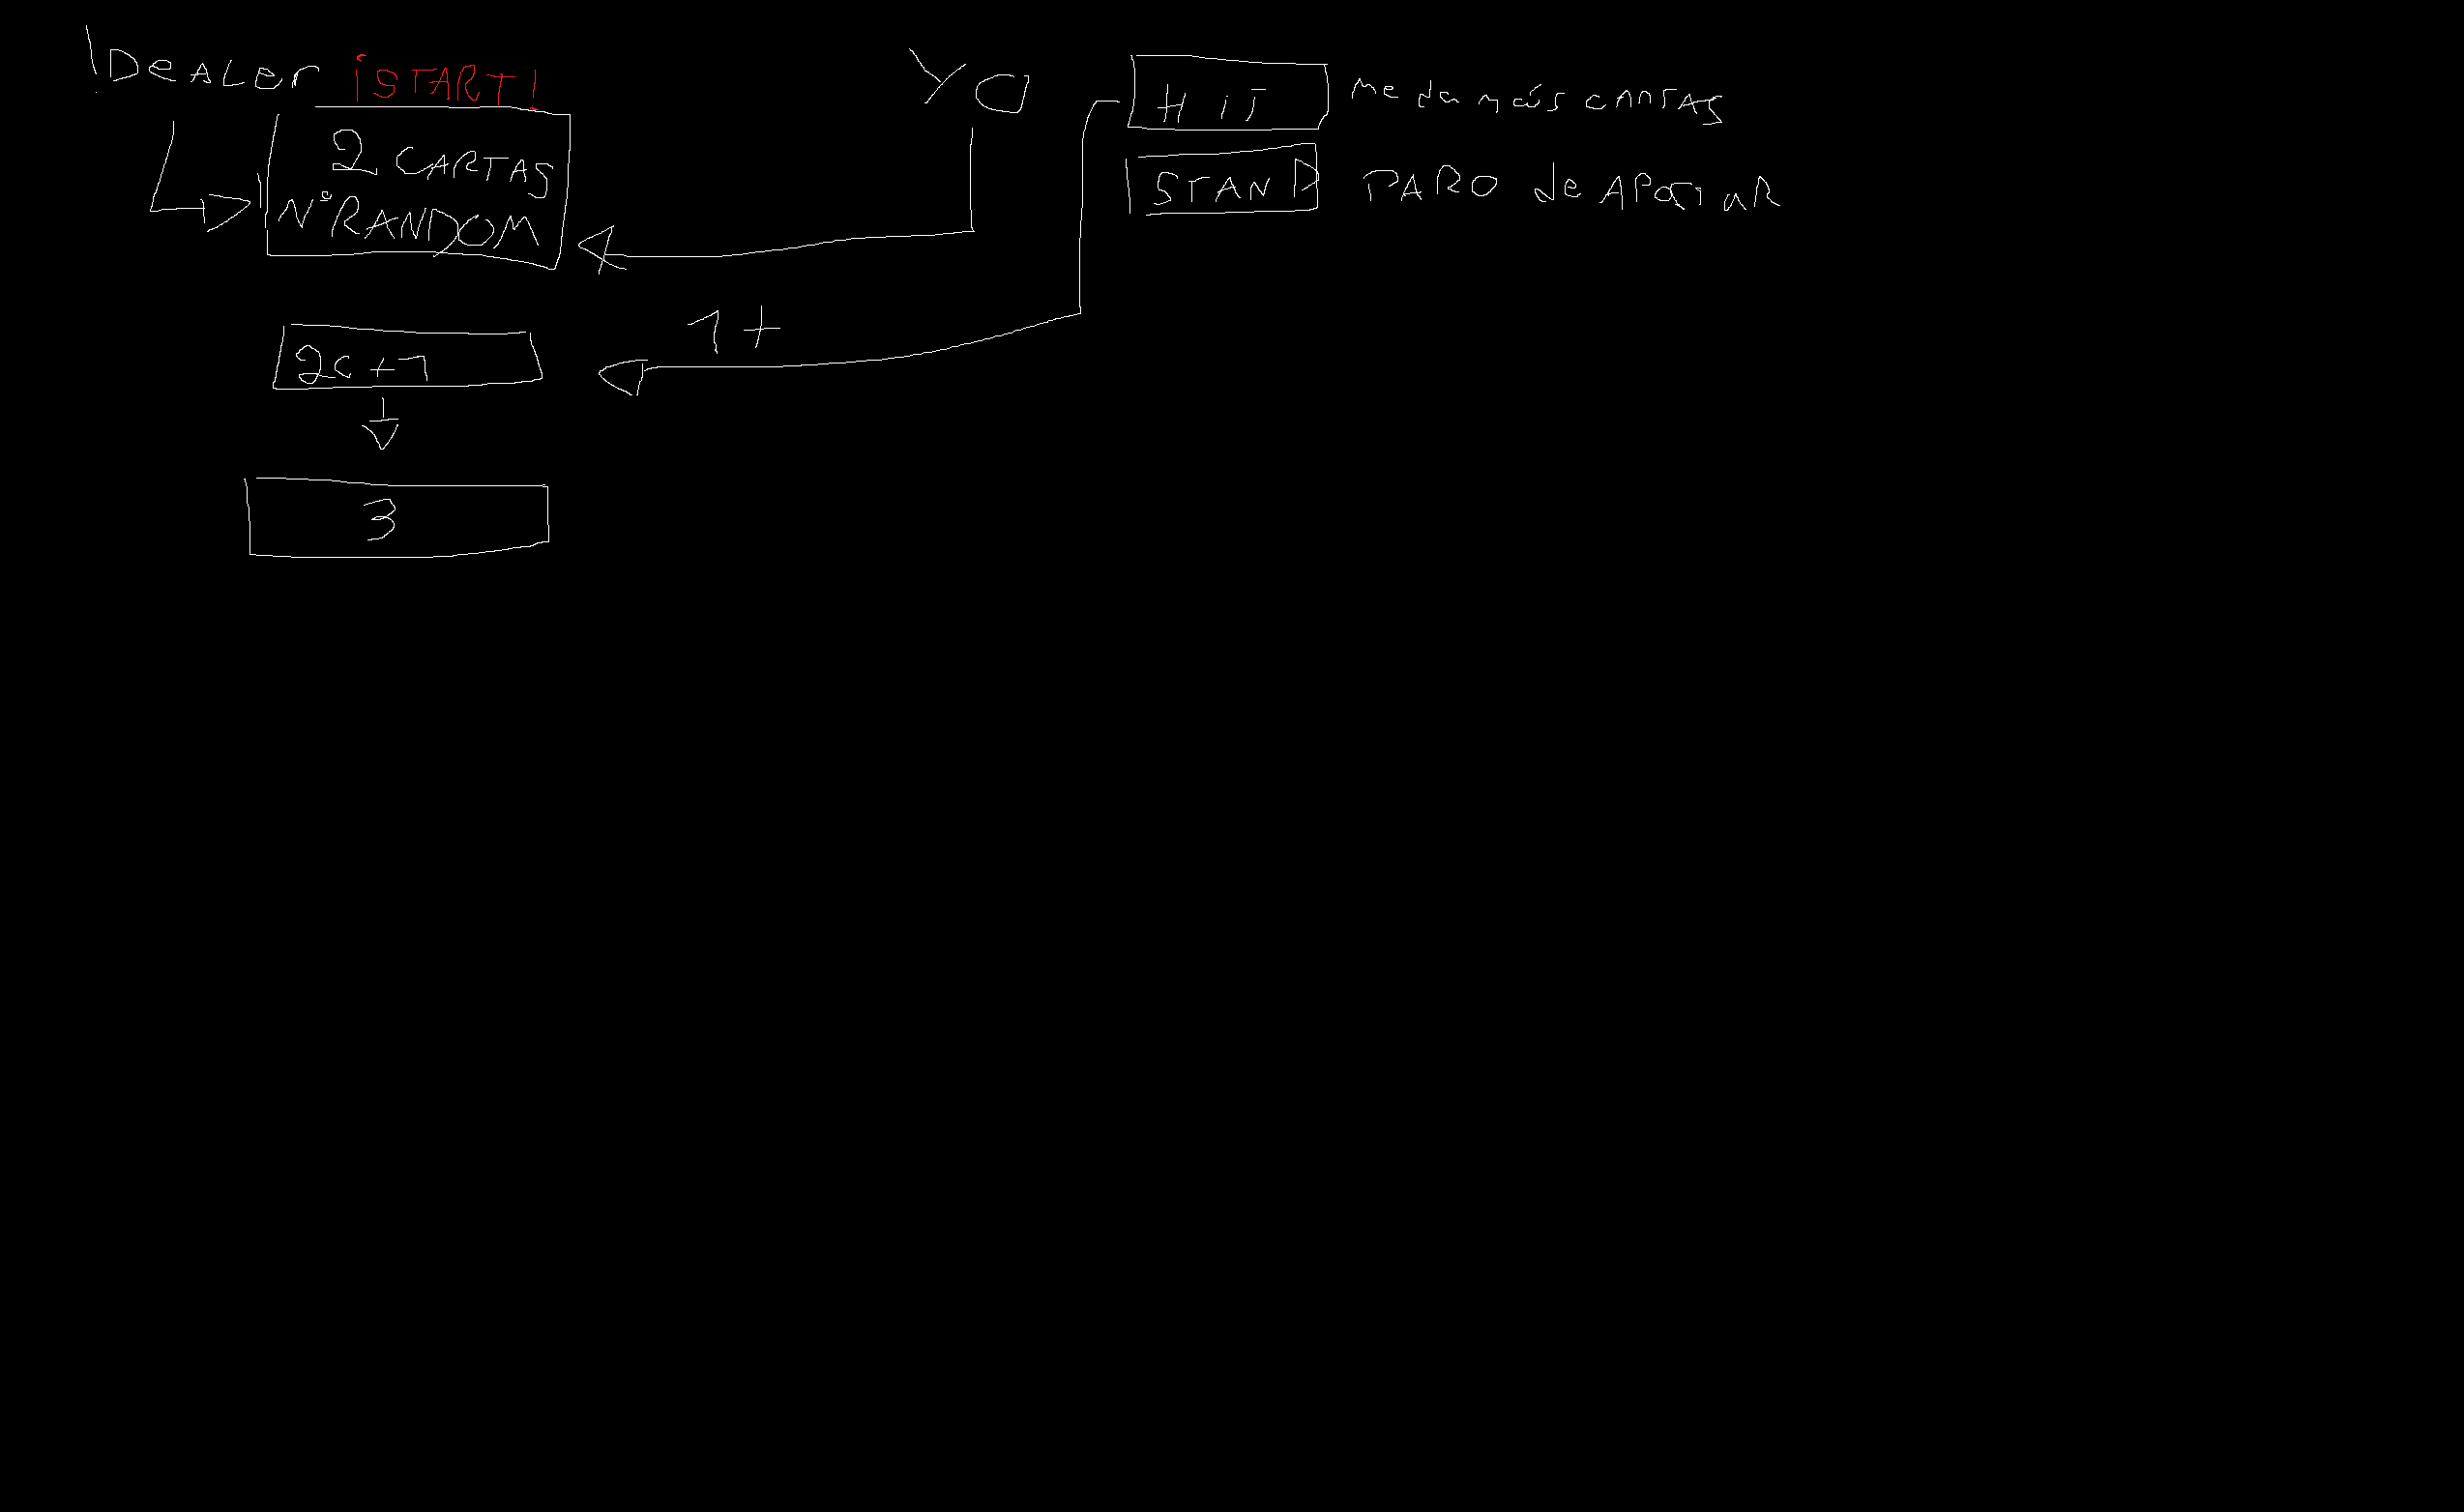 DeALer ¡START!
2 CARTAS
Nº RANDOM
YO
HiT
me da más CARTAS
STAND
PARO de APOSTAR
1+
2c+1
3